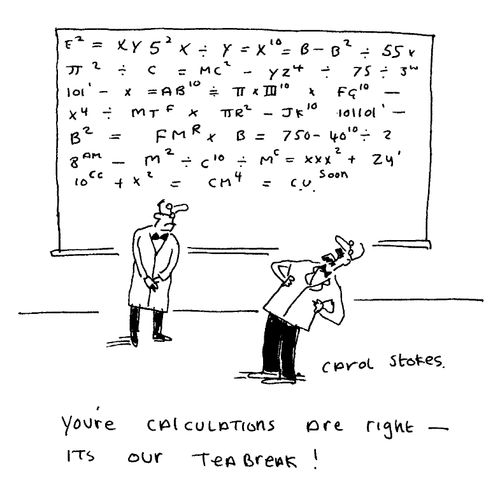 E² = XY 5² X ÷ Y = X¹⁰ = B - B² ÷ 55 x
π² ÷ C = MC² - YZ⁴ ÷ 75 ÷ 3ᵂ
101' - x = AB¹⁰ ÷ π x III¹⁰ x FG¹⁰ -
X⁴ ÷ MTᶠ x πR² - JK¹⁰ 101101' -
B² = FMᴿ x B = 750 - 40¹⁰ ÷ 2
8ᴬᴹ - M² ÷ C¹⁰ ÷ Mᶜ = XXX² + ZY'
10ᶜᶜ + X² = CM⁴ = C.U. SOON
CAROL STOKES.
YOU'RE CALCULATIONS ARE RIGHT —
ITS OUR TEABREAK!